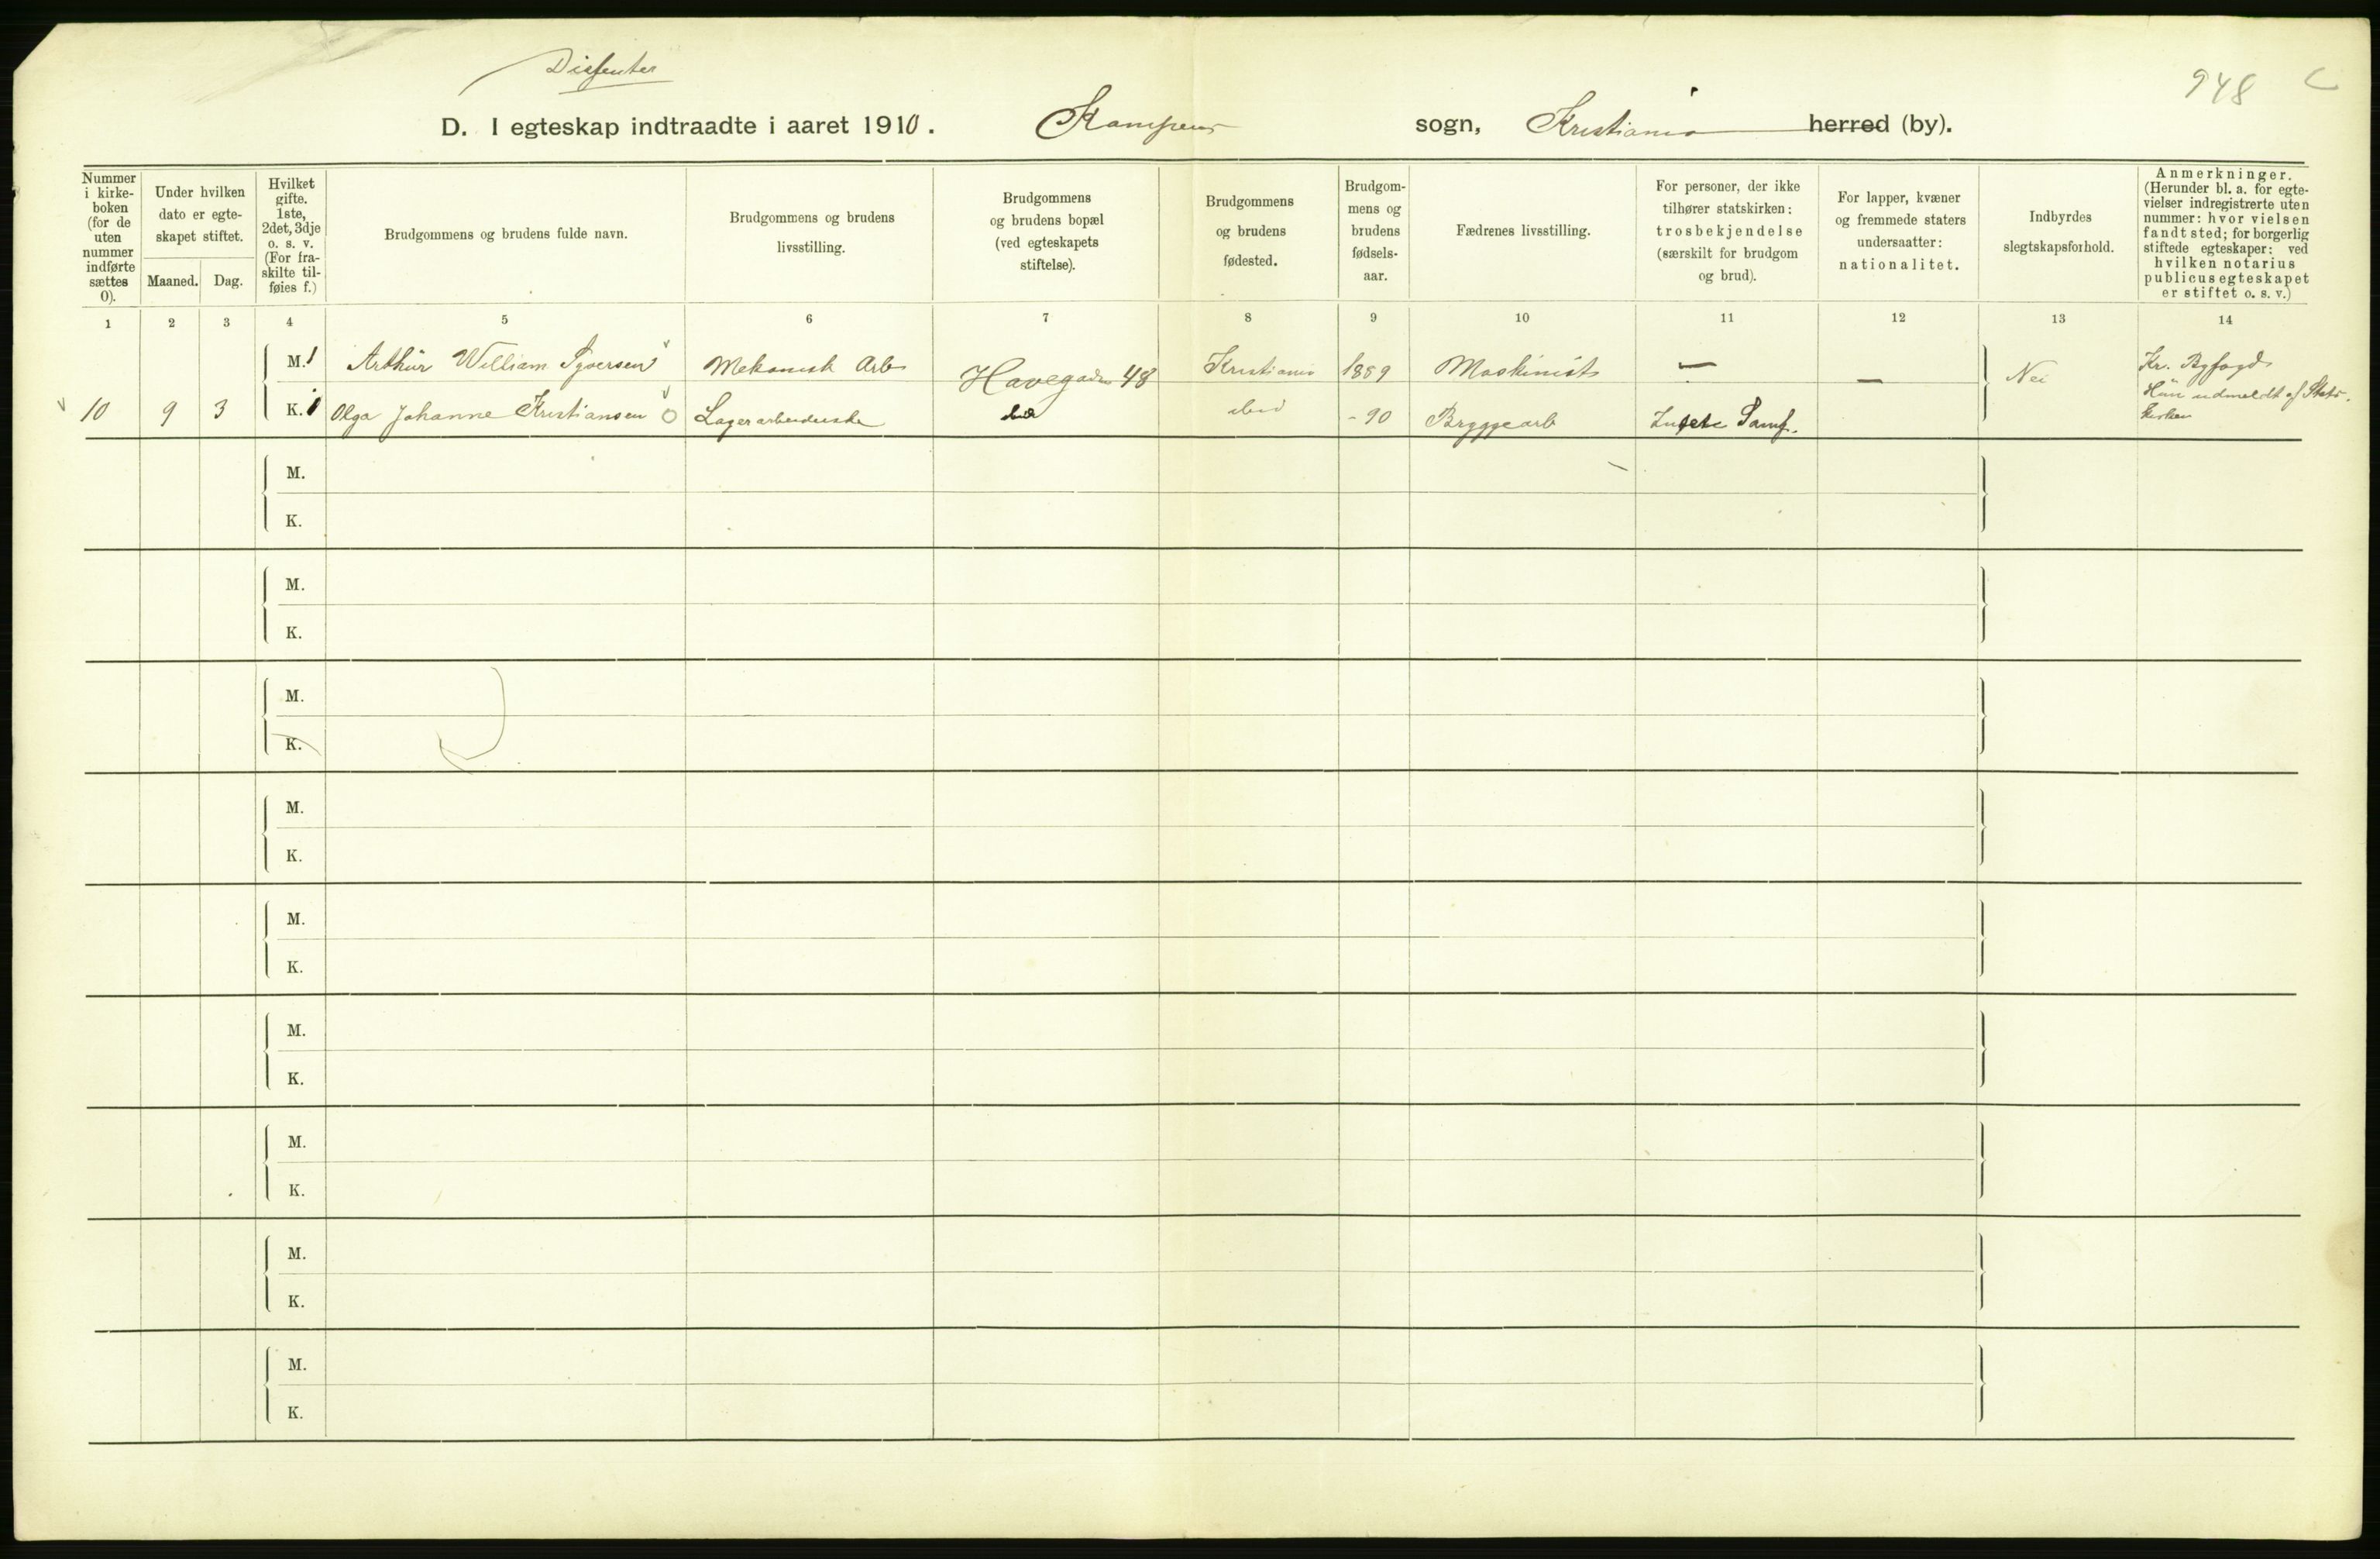 Dissenter
948
D. I egteskap indtraadte i aaret 1910. Kampens sogn, Kristiania herred (by).
Nummer i kirke-boken (for de uten nummer indførte sættes 0).
Under hvilken dato er egte-skapet stiftet.
Maaned. Dag.
Hvilket gifte. 1ste, 2det, 3dje o. s. v. (For fra-skilte til-føies f.)
Brudgommens og brudens fulde navn.
Brudgommens og brudens livsstilling.
Brudgommens og brudens bopæl (ved egteskapets stiftelse).
Brudgommens og brudens fødested.
Brudgom-mens og brudens fødsels-aar.
Fædrenes livsstilling.
For personer, der ikke tilhører statskirken: trosbekjendelse (særskilt for brudgom og brud).
For lapper, kvæner og fremmede staters undersaatter: nationalitet.
Indbyrdes slegtskapsforhold.
Anmerkninger. (Herunder bl. a. for egte-vielser indregistrerte uten nummer: hvor vielsen fandt sted; for borgerlig stiftede egteskaper: ved hvilken notarius publicus egteskapet er stiftet o. s. v.)
1 2 3 4 5 6 7 8 9 10 11 12 13 14
M. 1 Arthur William Syversen Mekanisk Arb Havegaden 48 Kristiania 1889 Maskinist — — Nei Kr. Byfogd
10 9 3 K. 1 Olga Johanne Kristiansen Lagerarbeiderske ibid -90 Bryggearb Intet Samf. Hun udmeldt af Stats-
kirken
M.
K.
M.
K.
M.
K.
M.
K.
M.
K.
M.
K.
M.
K.
M.
K.
M.
K.